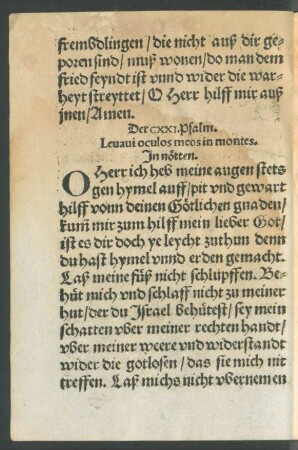 frembdlingen / die nicht auß dir ge-
poren sind / muß wonen / do man dem
fried feyndt ist vnnd wider die war-
heyt streyttet / O Herr hilff mir auß
jnen / Amen.
Der CXXI. Psalm.
Leuaui oculos meos in montes.
In nötten.
O Herr ich heb meine augen stets
gen hymel auff / pit vnd gewart
hilff vonn deinen Götlichen gnaden /
kum̃ mir zum hilff mein lieber Got /
ist es dir doch ye leycht zuthun denn
du hast hymel vnnd erden gemacht.
Laß meine füß nicht schlupffen. Be-
hüt mich vnd schlaff nicht zu meiner
hut / der du Israel behütest / sey mein
schatten vber meiner rechten handt /
vber meiner weere vnd widerstandt
wider die gotlosen / das sie mich nit
treffen. Laß michs nicht vbernemen